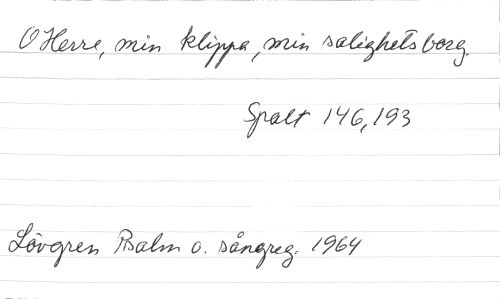 O Herre, min klippa, min salighets borg.
Spalt 146,193
Lövgren Psalm o. sångreg. 1964